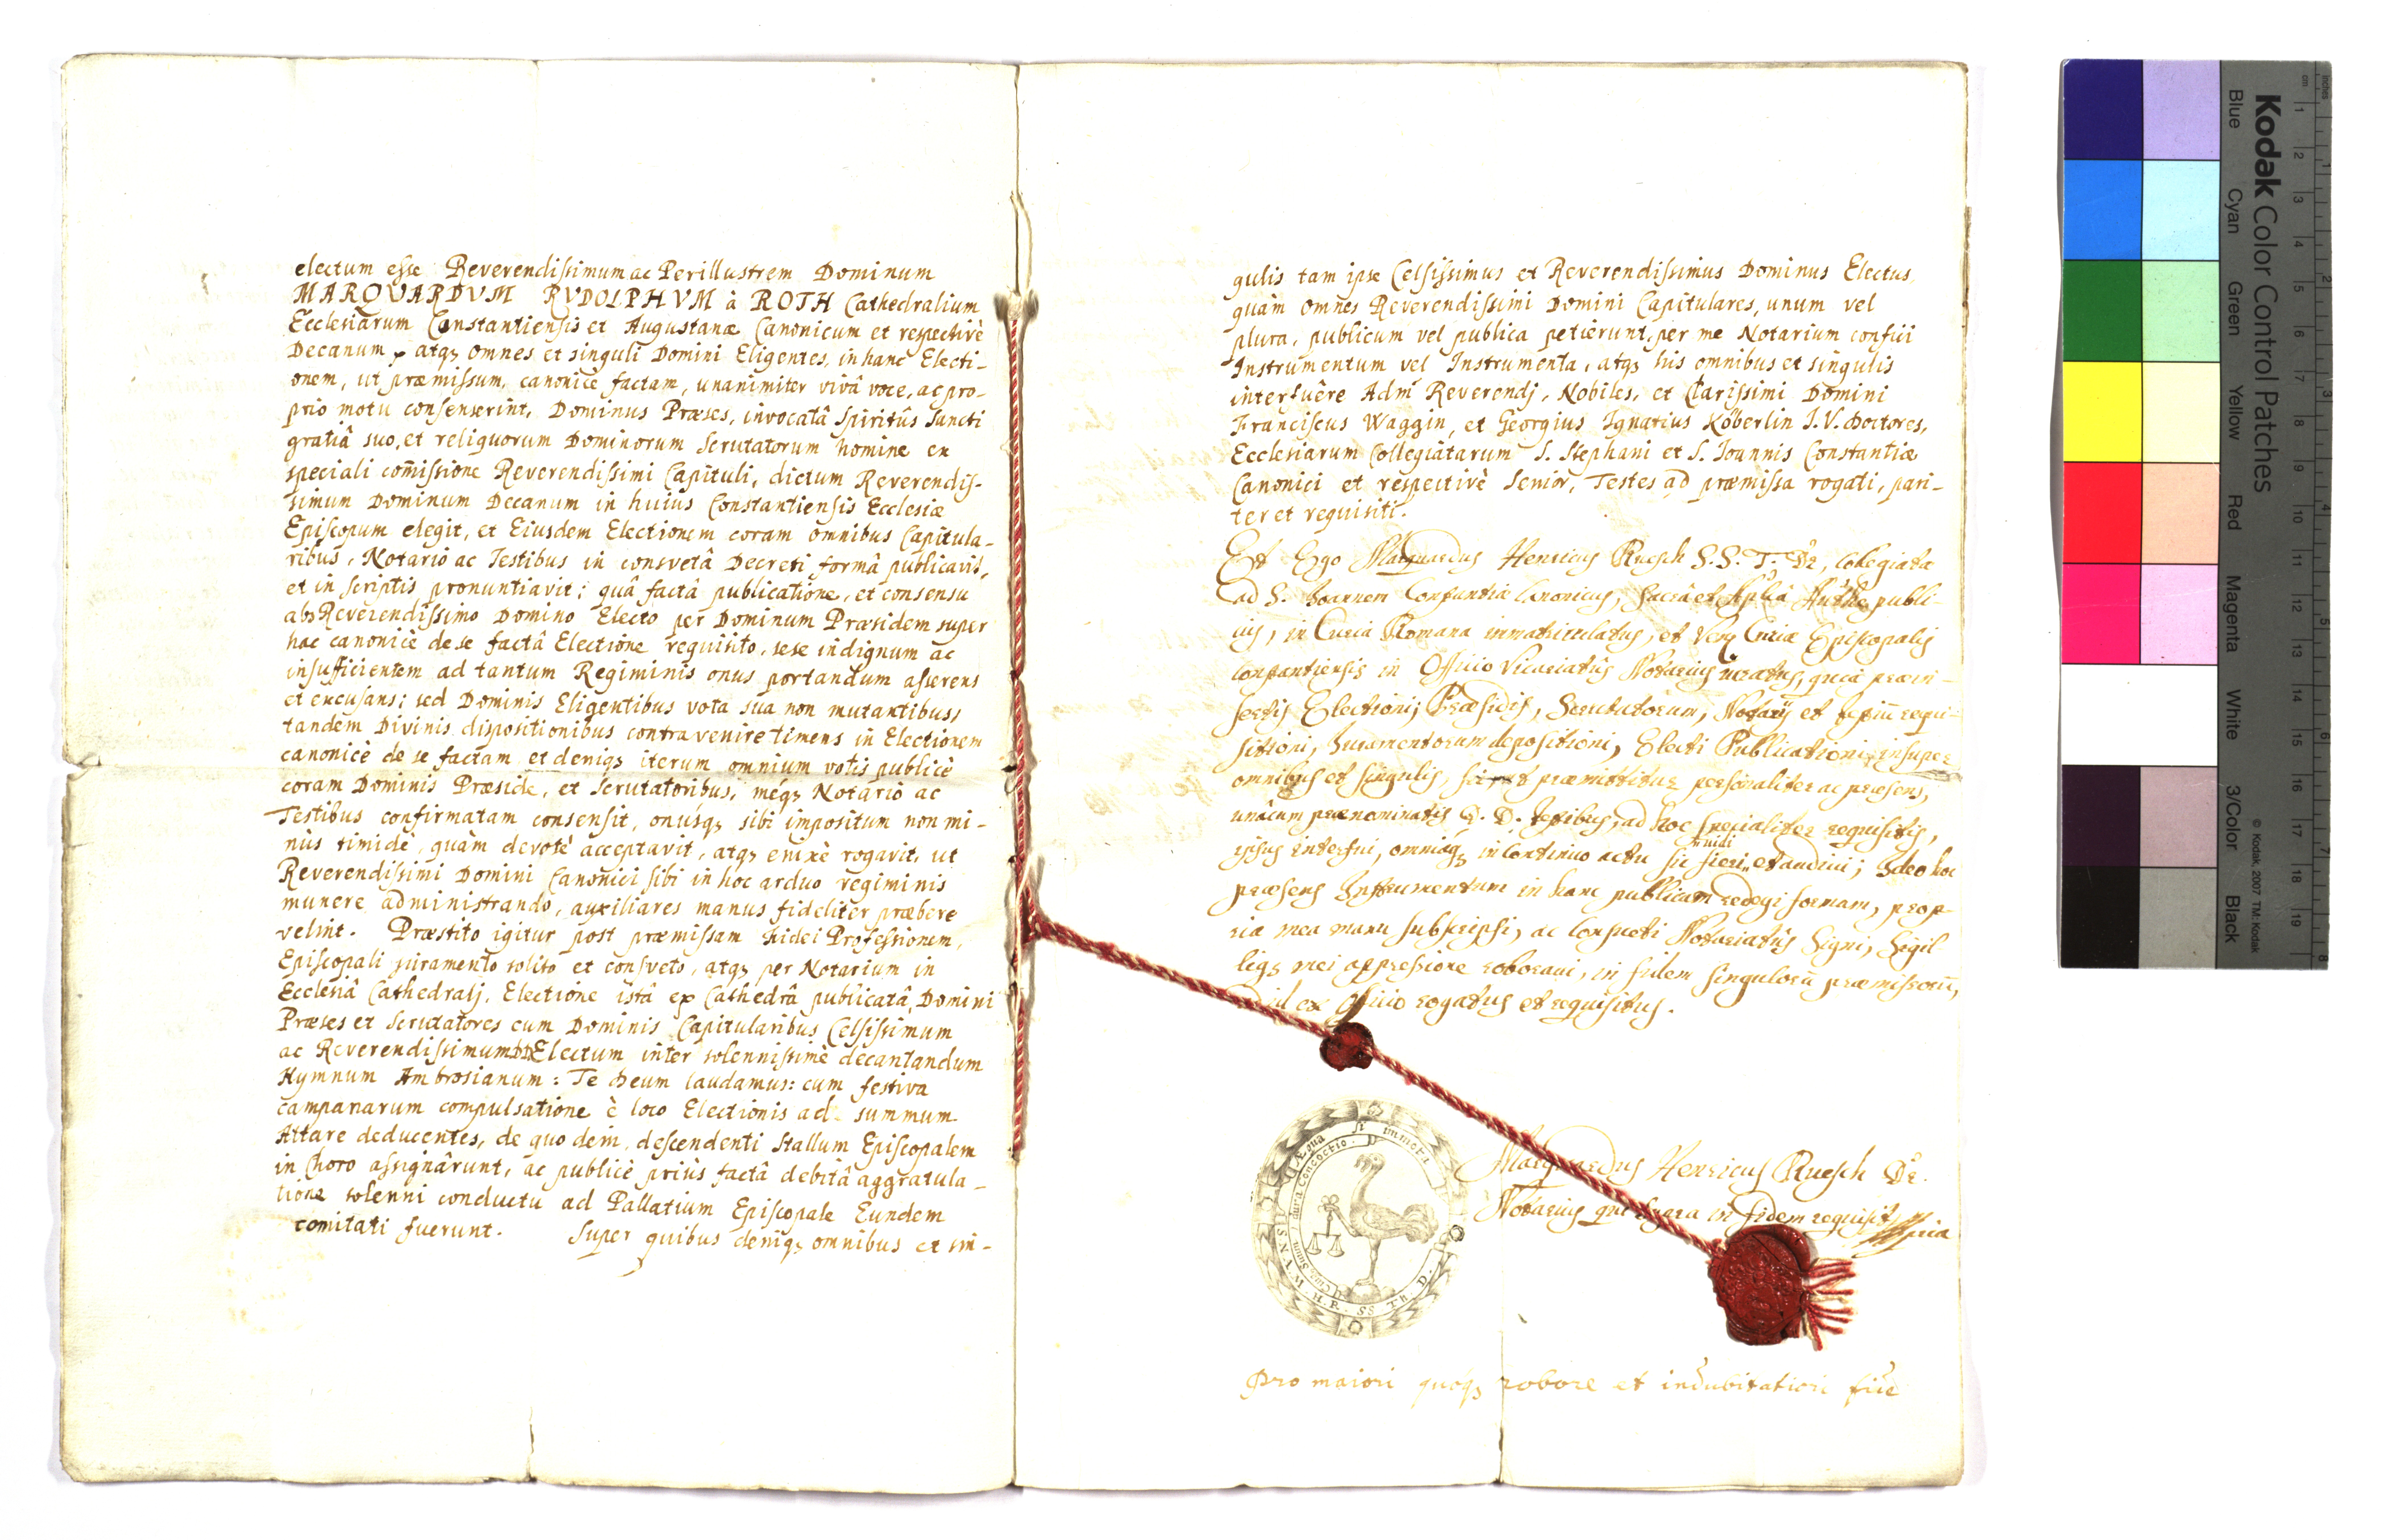 electum esse Reverendissimum ac Perillustrem Dominum
MARQVARDVM RVDOLPHVM à ROTH Cathedralium
Ecclesiarum Constantiensis et Augustanæ Canonicum et respectivè
Decanum, atqꝫ omnes et singuli Domini Eligentes, in hanc Electi-
onem, ut præmissum, canonicè factam, unanimiter vivâ voce, ac pro-
prio motu consenserint, Dominus Præses, invocatâ Spiritûs Sancti
gratiâ suo, et reliquorum Dominorum Scrutatorum nomine ex
speciali com̃issione Reverendissimi Capituli, dictum Reverendis-
simum Dominum Decanum in huius Constantiensis Ecclesiæ
Episcopum elegit, et Eiusdem Electionem coram omnibus Capitula-
ribus, Notario ac Testibus in consvetâ Decreti formâ publicavit,
et in scriptis pronuntiavit; quâ factâ publicatione, et consensu
abs Reverendissimo Domino Electo per Dominum Præsidem super
hac canonicè de se factâ Electione requisito, sese indignum ac
insufficientem ad tantum Regiminis onus portandum asserens
et excusans; sed Dominis Eligentibus vota sua non mutantibus,
tandem Divinis dispositionibus contravenire timens in Electionem
canonicè de se factam et deniqꝫ iterum omnium votis publicè
coram Dominis Præside, et Scrutatoribus, meqꝫ Notario ac
Testibus confirmatam consensit, onúsqꝫ sibi impositum non mi-
nùs timidè, quàm devotè acceptavit, atqꝫ enixè rogavit, ut
Reverendissimi Domini Canonici sibi in hoc arduo regiminis
munere administrando, auxiliares manus fideliter præbere
velint. Præstito igitur post præmissam Fidei Professionem,
Episcopali juramento solito et consveto, atqꝫ per Notarium in
Ecclesiâ Cathedrali, Electione istâ ex Cathedrâ publicatâ, Domini
Præses et Scrutatores cum Dominis Capitularibus Celsissimum
ac Reverendissimum DD Electum inter solennissimè decantandum
Hymnum Ambrosianum: Te Deum laudamus: cum festiva
campanarum compulsatione è loco Electionis ad summum
Altare deducentes, de quo dein descendenti Stallum Episcopalem
in Choro assignârunt, ac publicè priùs factâ debitâ aggratula-
tione solenni conductu ad Pallatium Episcopale Eundem
comitati fuerunt. Super quibus deniqꝫ omnibus et sin-
gulis tam ipse Celsissimus et Reverendissimus Dominus Electus
quàm omnes Reverendissimi Domini Capitulares, unum vel
plura, publicum vel publica petierunt, per me Notarium confici
Instrumentum vel Instrumenta, atqꝫ his omnibus et singulis
interfuêre Adm̃ Reverendj, Nobiles, et Clarissimi Domini
Franciscus Waggin, et Georgius Ignatius Köberlin I.V. Doctores,
Ecclesiarum Collegiatarum S. Stephani et S. Ioannis Constantiæ
Canonici et respectivè Senior, Testes ad præmissa rogati, pari-
ter et requisiti.
Et Ego Marquardus Henricus Ruesch S.S. T. Dr, Collegiatæ
ad S. Joannem Constantiæ Canonicus, Sacrâ et Auth publi-
cus, in Curia Romana immatriculatus, et Curiæ Episcopalis
Constantiensis in Officio Vicariatûs Notarius juratus, quia præin-
sertis Electionis Præsidis, Scrutatorum, Notarij et requi-
sitioni, Juramentorum depositioni, Electi Publicationi, insuper
omnibus et singulis, præmittitur personaliter ac præsens,
unàcum prænominatis D. D. testibus, ad hoc specialiter requisitis,
ipsus interfui, omniaqꝫ in continuo actu sic fieri, vidi et audivi; Ideo hoc
præsens Instrumentum in hanc publicam redegi formam, prop-
ria mea manu subscripsi, ac Consueti Notariatûs Signi, Sigil
liqꝫ mei appressione roboravi, in fidem singulorũ præmissorũ,
ex Officio rogatus et requisitus.
Marquardus Henricus Ruesch Dr.
Notarius in fidem requisitus
M. H. R. SS. Th. D.
Pro maiori quoqꝫ robore et indubitatiori fide
Kodak Color Control Patches
Blue Cyan Green Yellow Red Magenta White 3/Color Black
© Kodak, 2007 TM: Kodak
inches
cm
1 2 3 4 5 6 7 8 9 10 11 12 13 14 15 16 17 18 19
1 2 3 4 5 6 7 8